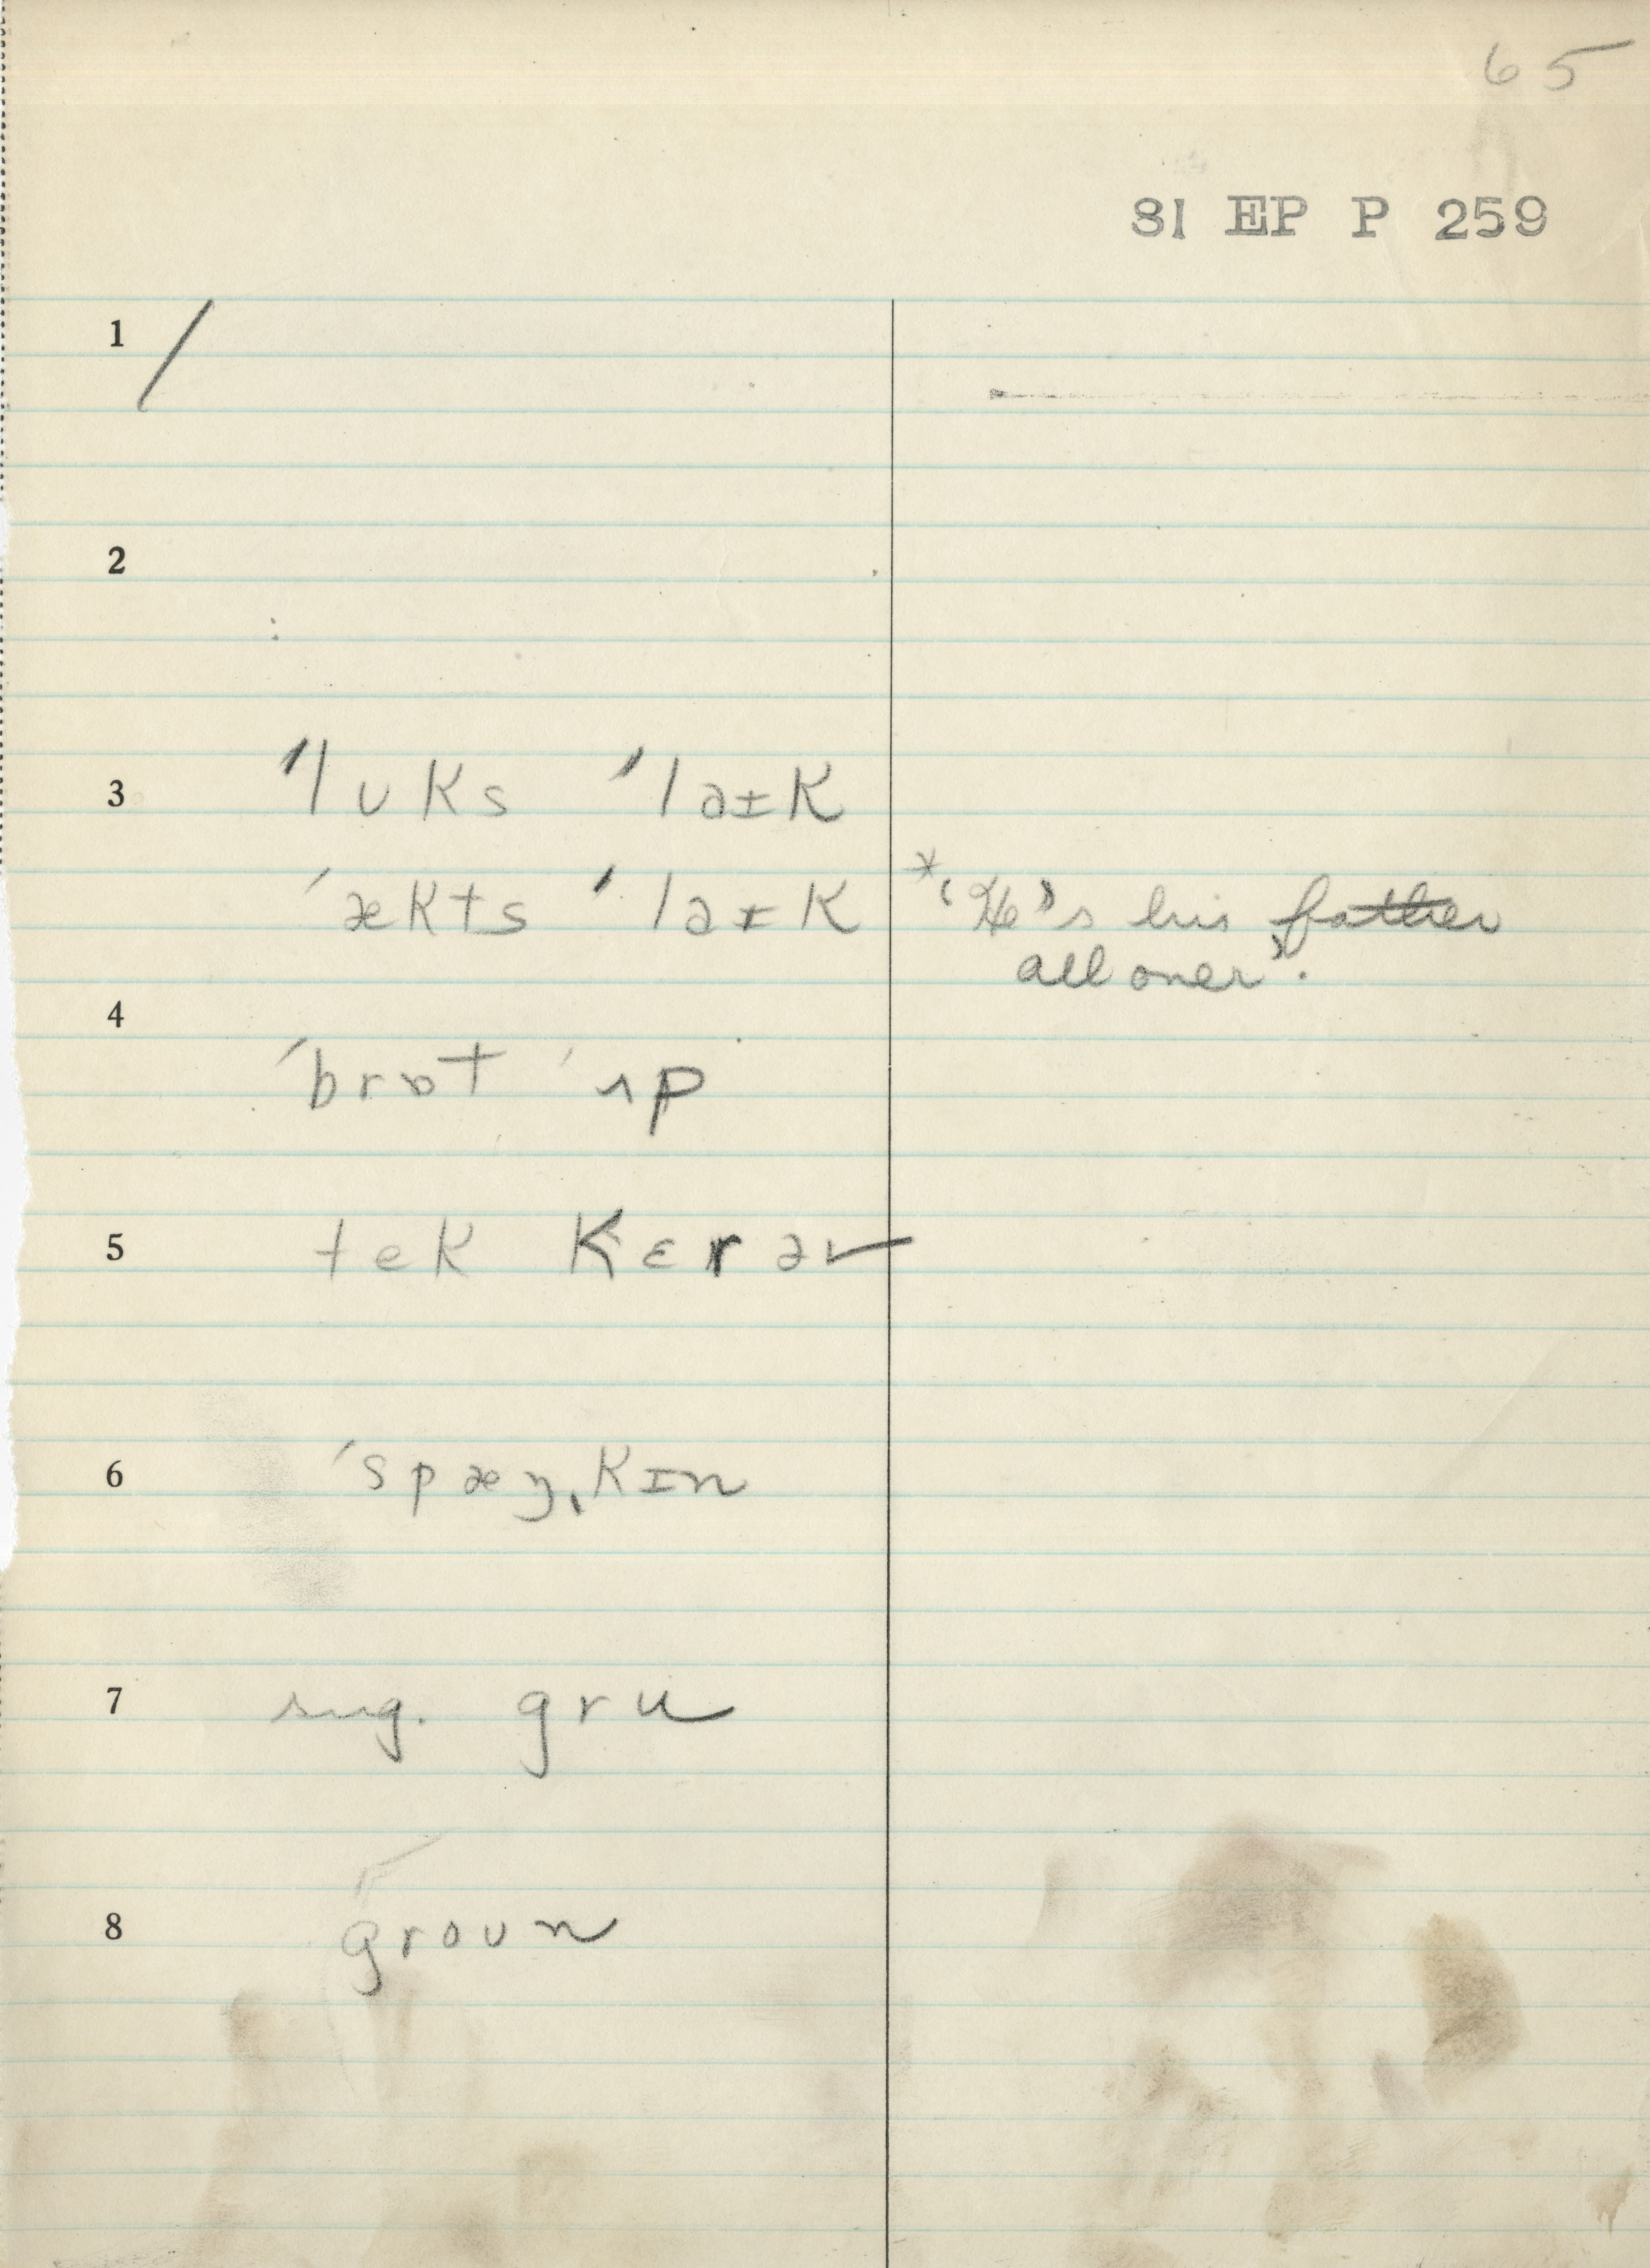 65
81 EP P 259
1 /
2
3 ˈlʊks ˈlaɪk
ˈækts ˈlaɪk *‘He’s his father
all over’.
4
ˈbrɒt ˈʌp
5 tek kɛrəv
6 ˈspæŋˌkɪn
7 sug. gru
8 groun